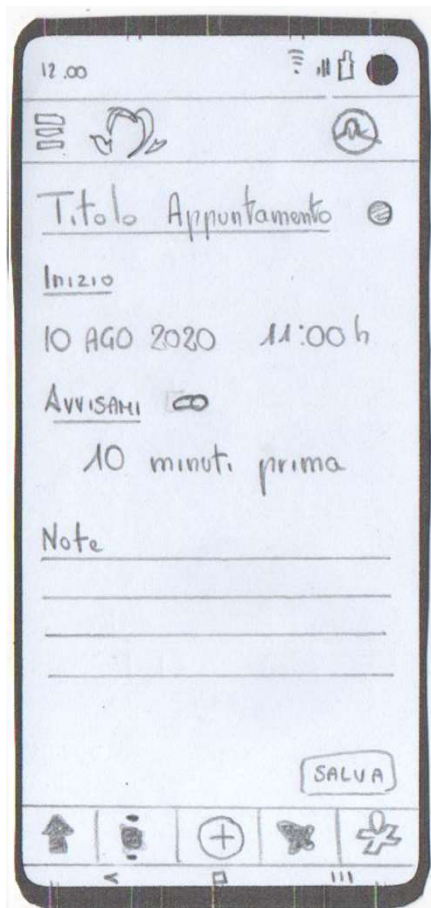 12.00
Titolo Appuntamento
Inizio
10 AGO 2020 11:00 h
AVVISAMI
10 minuti prima
Note
SALVA